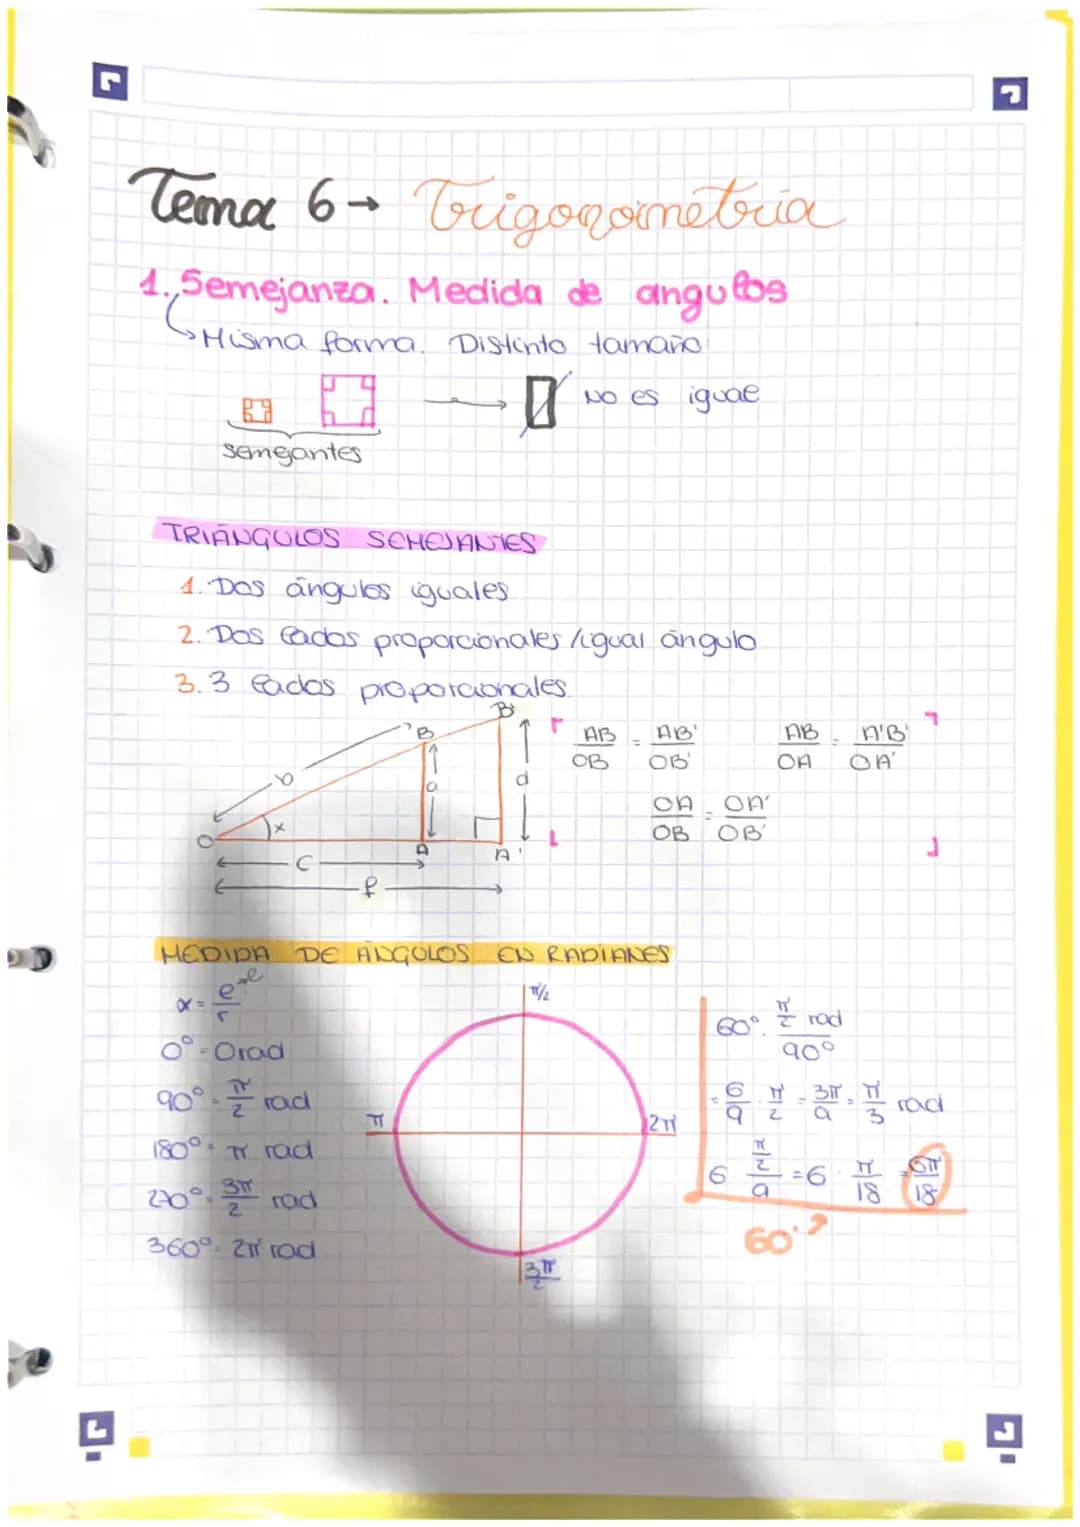 Tema 6→ Trigonoimetria
1. Semejanza. Medida de angulos
↳Misma forma. Distinto tamaño
→ NO es igual
semejantes
TRIÁNGULOS SEMEJANTES
1. Dos ángulos iguales
2. Dos lados proporcionales /igual ángulo
3. 3 lados proporcionales
B B'
b a d
O x A A'
c
f
AB/OB = AB'/OB' AB/OA = A'B'/OA'
OA/OB = OA'/OB'
MEDIDA DE ÁNGULOS EN RADIANES
α = e/r
0º = 0 rad
90º = π/2 rad
180º = π rad
270º = 3π/2 rad
360º = 2π rad
π/2
π 2π
3π/2
60º · π/2 rad / 90º
= 6/9 · π/2 = 3π/9 = π/3 rad
6 · π/2 / 9 = 6 · π/18 = 6π/18
60º